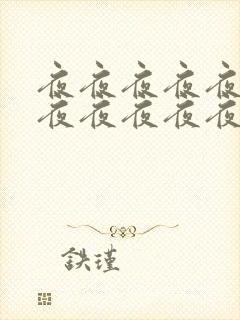 夜夜夜夜夜
夜夜夜夜夜
鉄瑾